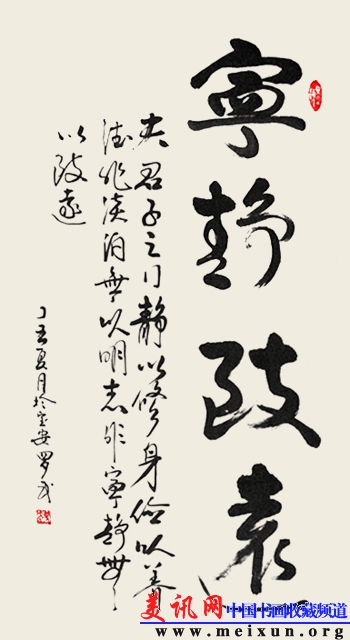 寧靜致遠
夫君子之行靜以修身儉以養
德非淡泊無以明志非寧靜無
以致遠
丁亥夏月於寶安羅成
美讯网 中国书画收藏频道
www.meixun.org